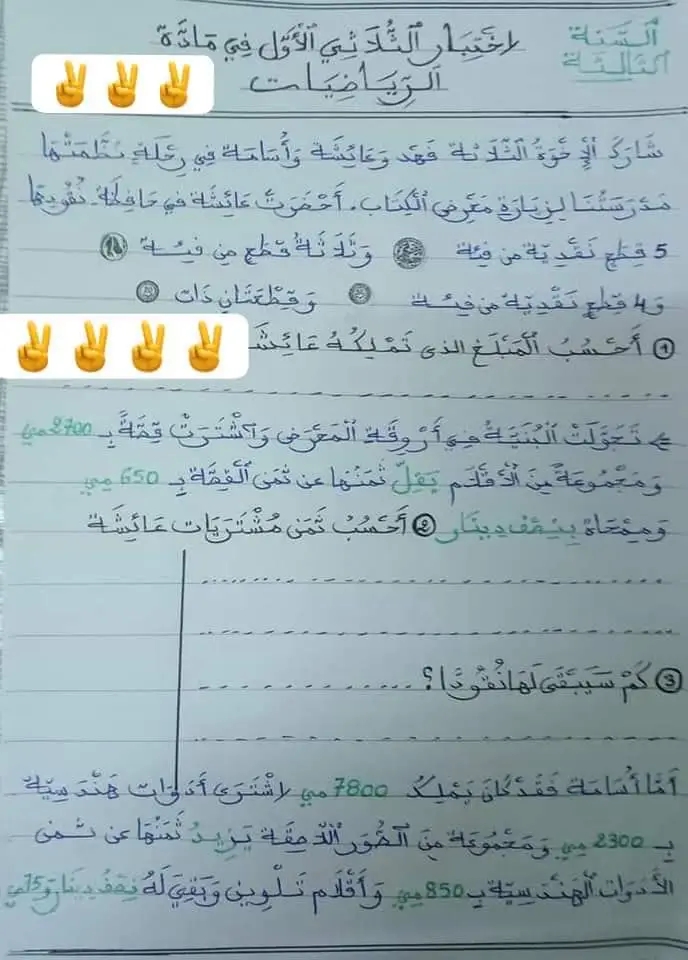 السّنة
الثالثة
اختبار الثّلاثي الأوّل في مادّة
الرّياضيات
شَارَكَ الإخْوَةُ الثّلاثة فهد وعائشة وأسامة في رحلة نظّمتْها
مدرستنا لزيارة معرض الكتاب. أحضرت عائشة في حافظة نقودها
5 قطع نقديّة من فئة وثلاثة قطع من فيئة
و4 قطع نقديّة من فيئة وقطعتان ذات
① أحْسُبُ المَبْلَغ الذي تَمْلِكُهُ عائش
تجوّلت البُنيّةُ في أروقة المعرض واشترتْ قصّةً بـ 2700مي
ومجموعة من الأقلام يقلّ ثمنها عن ثمن القصّة بـ 650 مي
وممحاة بنصف دينار ② أحسُبُ ثمن مشتريات عائشة
③ كمْ سيبقى لها نُقُودًا؟
أمّا أسامة فقد كان يملك 7800 مي اشترى أدوات هندسيّة
بـ 2300 مي ومجموعة من الصّور اللاّصقة يزيدُ ثمنها عن ثمن
الأدوات الهندسيّة بـ 850مي وأقلام تلوين وبقي لهُ نصف دينار و75مي